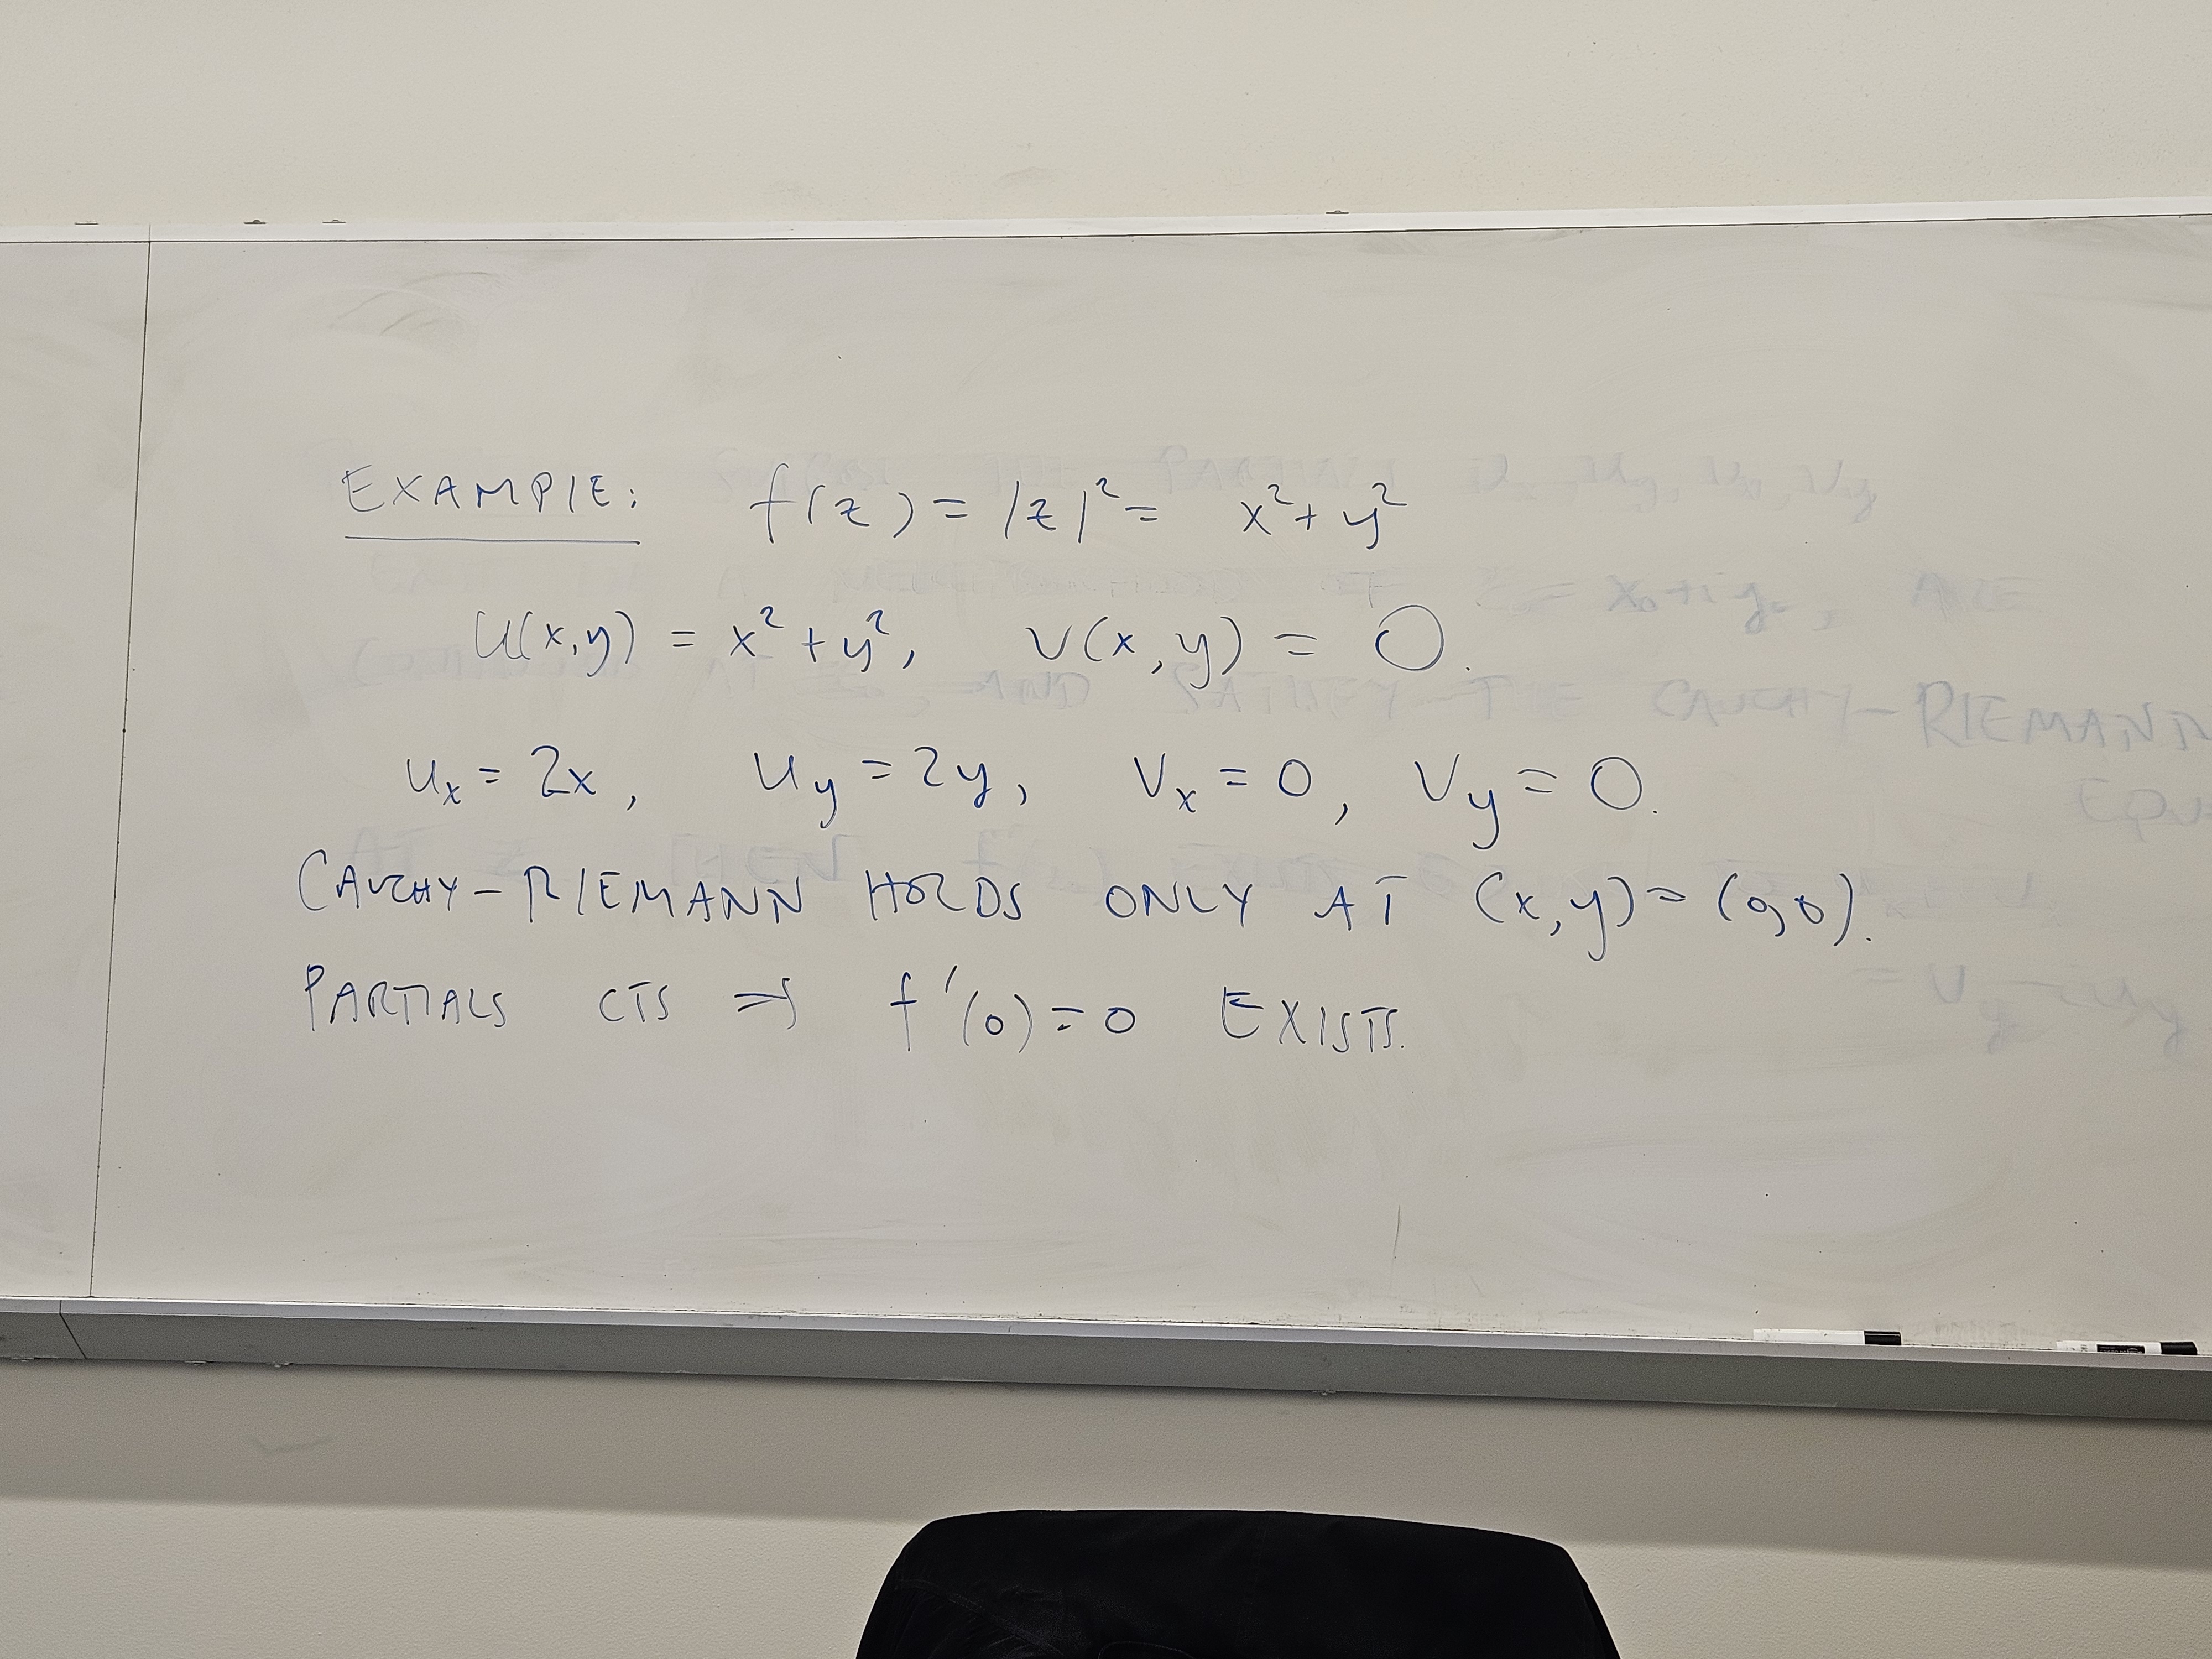 EXAMPLE: f(z) = |z|² = x² + y²
u(x,y) = x² + y², v(x,y) = 0.
u_x = 2x, u_y = 2y, v_x = 0, v_y = 0.
CAUCHY-RIEMANN HOLDS ONLY AT (x,y) = (0,0).
PARTIALS CTS ⇒ f'(0) = 0 EXISTS.